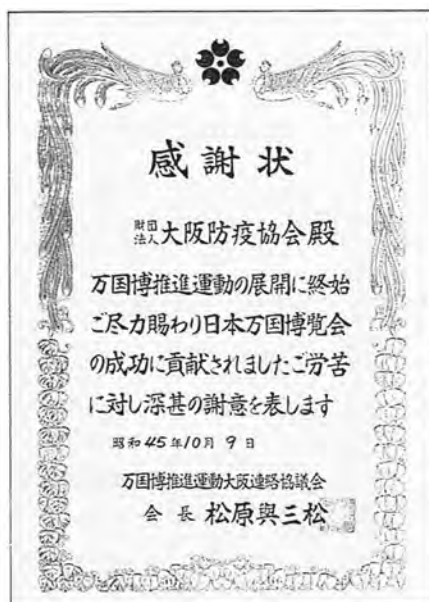 感謝状
財団法人 大阪防疫協会殿
万国博推進運動の展開に終始
ご尽力賜わり日本万国博覧会
の成功に貢献されましたご労苦
に対し深甚の謝意を表します
昭和45年10月9日
万国博推進運動大阪連絡協議会
会長 松原與三松